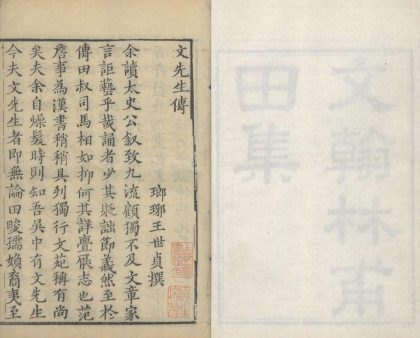 文翰林甫
田集
文先生傳
瑯琊王世貞撰
余讀太史公叙致九流顧獨不及文章家
言詎藝乎哉誦者少其詘節義然至於
傳田叔司馬相如抑何其詳志也范
詹事為漢書稍稍具列獨行文苑稱有尚
矣夫余自燥髮時則知吾吳中有文先生
今夫文先生者即無論田畯孺婦裔夷至